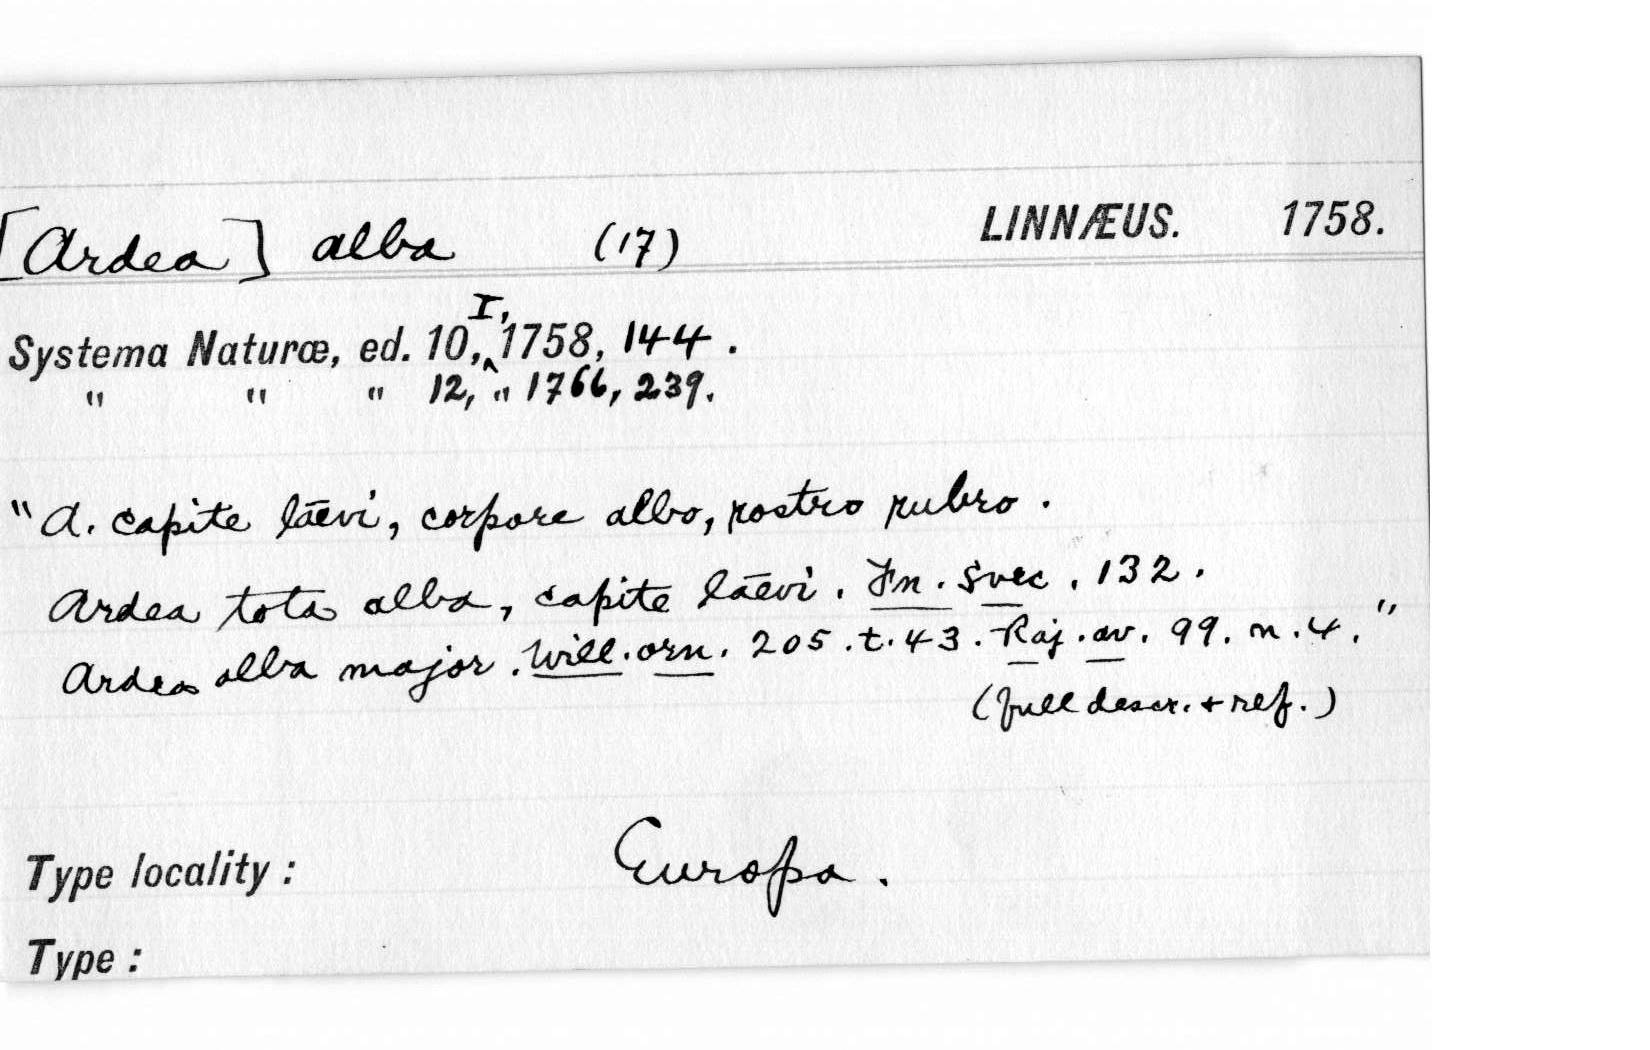 [Ardea] alba (17) LINNÆUS. 1758.
Systema Naturæ, ed. 10, I, 1758, 144.
" " " 12, " 1766, 239.
"A. capite lævi, corpore albo, rostro rubro.
Ardea tota alba, capite lævi. Fn. svec. 132.
Ardea alba major. Will. orn. 205. t. 43. Raj. av. 99. n. 4."
(full descr. + ref.)
Type locality: Europa.
Type: